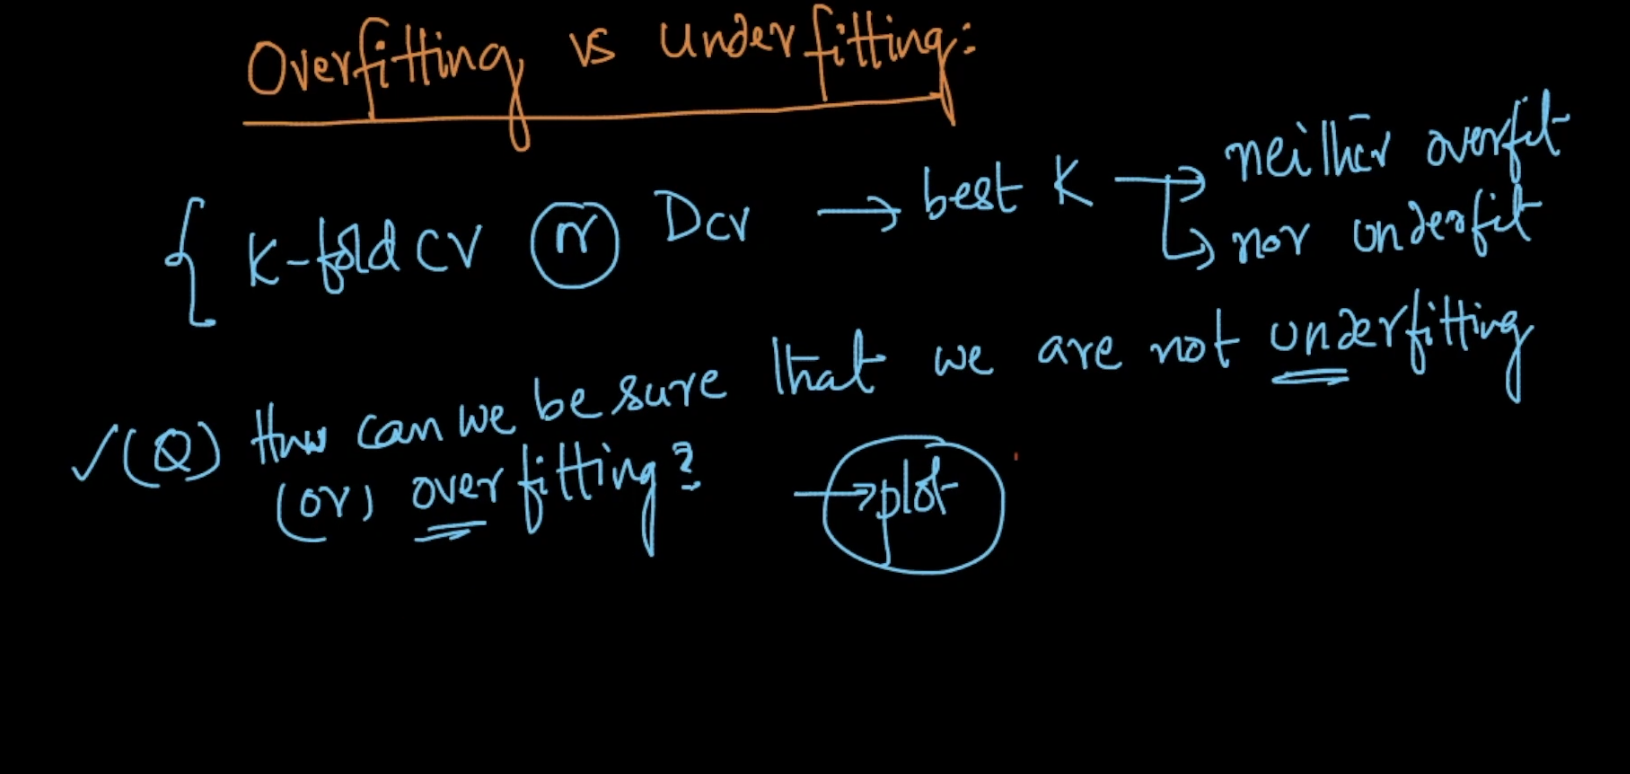 Overfitting vs Underfitting:
K-fold CV or Dcv → best K → neither overfit
↳ nor underfit
✓(Q) How can we be sure that we are not underfitting
(or) overfitting? → plot